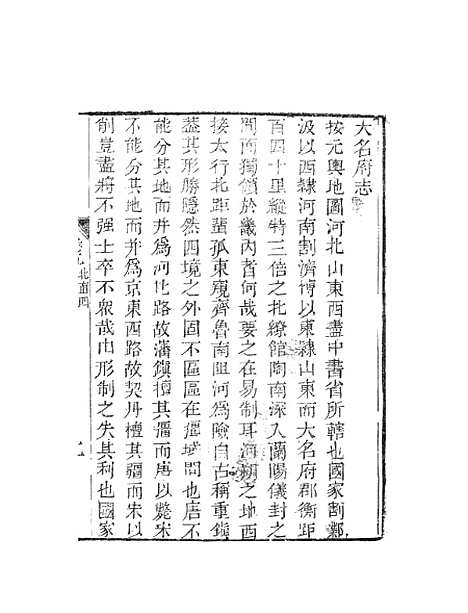 大名府志
按元輿地圖河北山東西盡中書省所轄也國家割鄴
汲以西隷河南割濟博以東隷山東而大名府郡衡距
百四十里縱特三倍之北繚館陶南深入蘭陽儀封之
間而獨領於畿內者何哉要之在易制耳河朔之地西
接太行北距蜚孤東窺齊魯南阻河為險自古稱重鎮
葢其形勝隱然四境之外固不區區在疆域間也唐不
能分其地而并為河北路故藩鎮擅其疆而唐以斃宋
不能分其地而并為京東西路故契丹擅其疆而宋以
削豈盡將不强士卒不衆哉由形制之失其利也國家